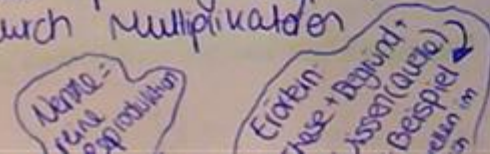 durch Multiplikatoren
Nenne =
reine
Reproduktion
Erörtern:
These + Begründ. +
Wissen (Quelle)
Beispiel
im